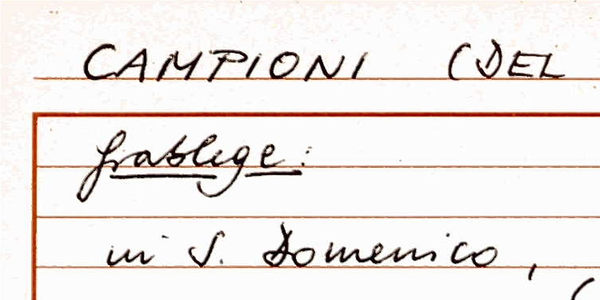 CAMPIONI (DEL
Grablege:
in S. Domenico,